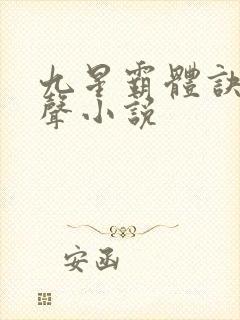 九星霸體訣
聲小説
安函